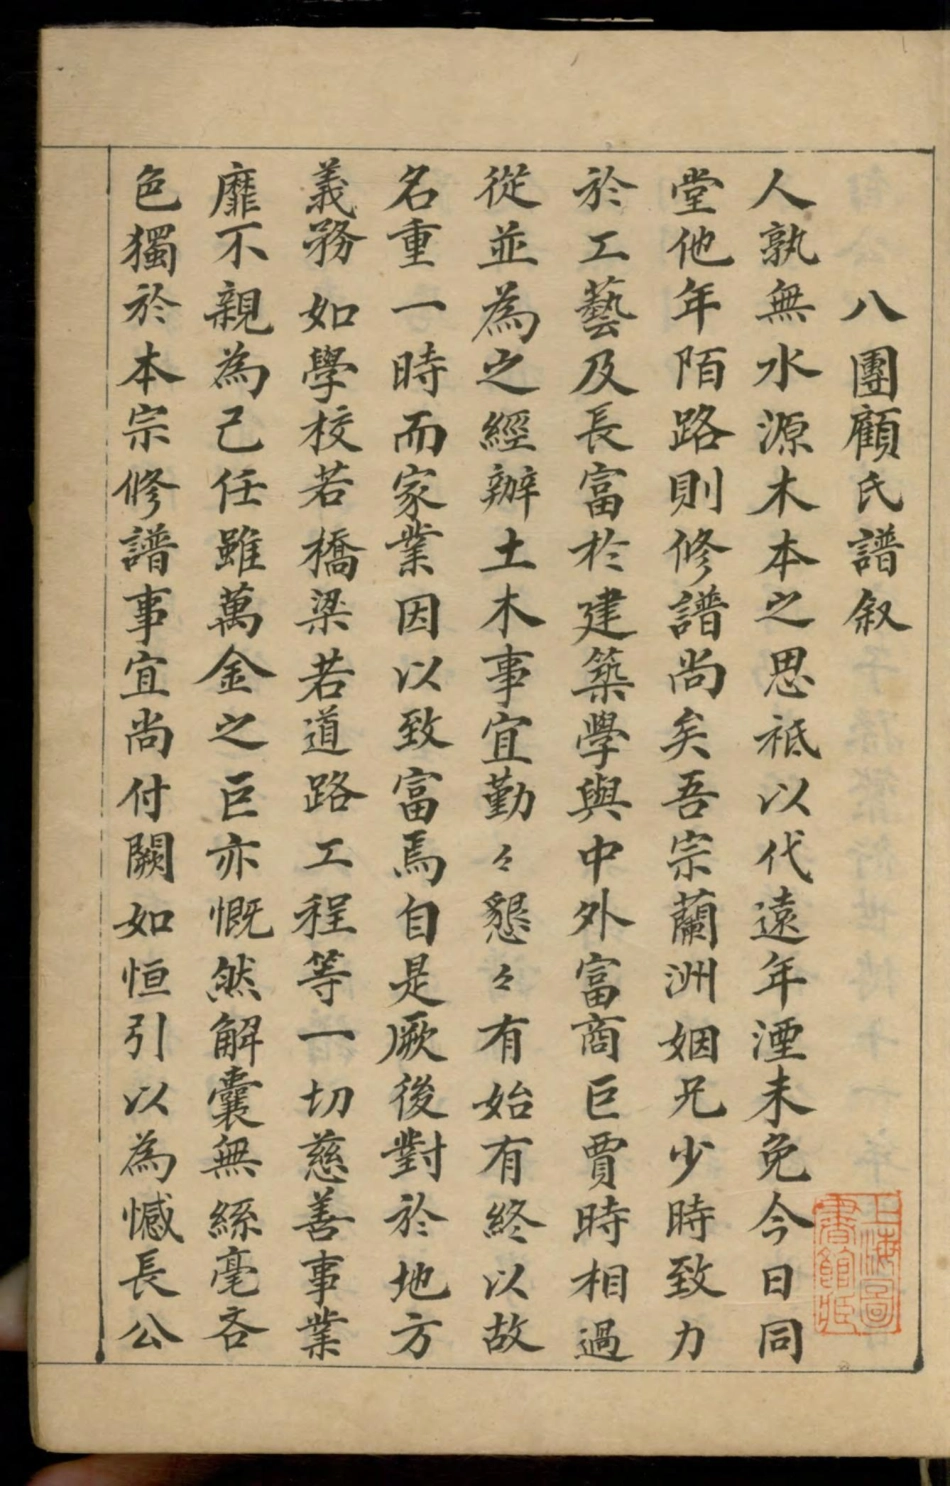 八團顧氏譜叙
人孰無水源木本之思祗以代遠年湮未免今日同
堂他年陌路則修譜尚矣吾宗蘭洲姻兄少時致力
於工藝及長富於建築學與中外富商巨賈時相過
從並為之經辦土木事宜勤々懇々有始有終以故
名重一時而家業因以致富焉自是厥後對於地方
義務如學校若橋梁若道路工程等一切慈善事業
靡不親為己任雖萬金之巨亦慨然解囊無絲毫吝
色獨於本宗修譜事宜尚付闕如恒引以為憾長公
上海圖
書館藏